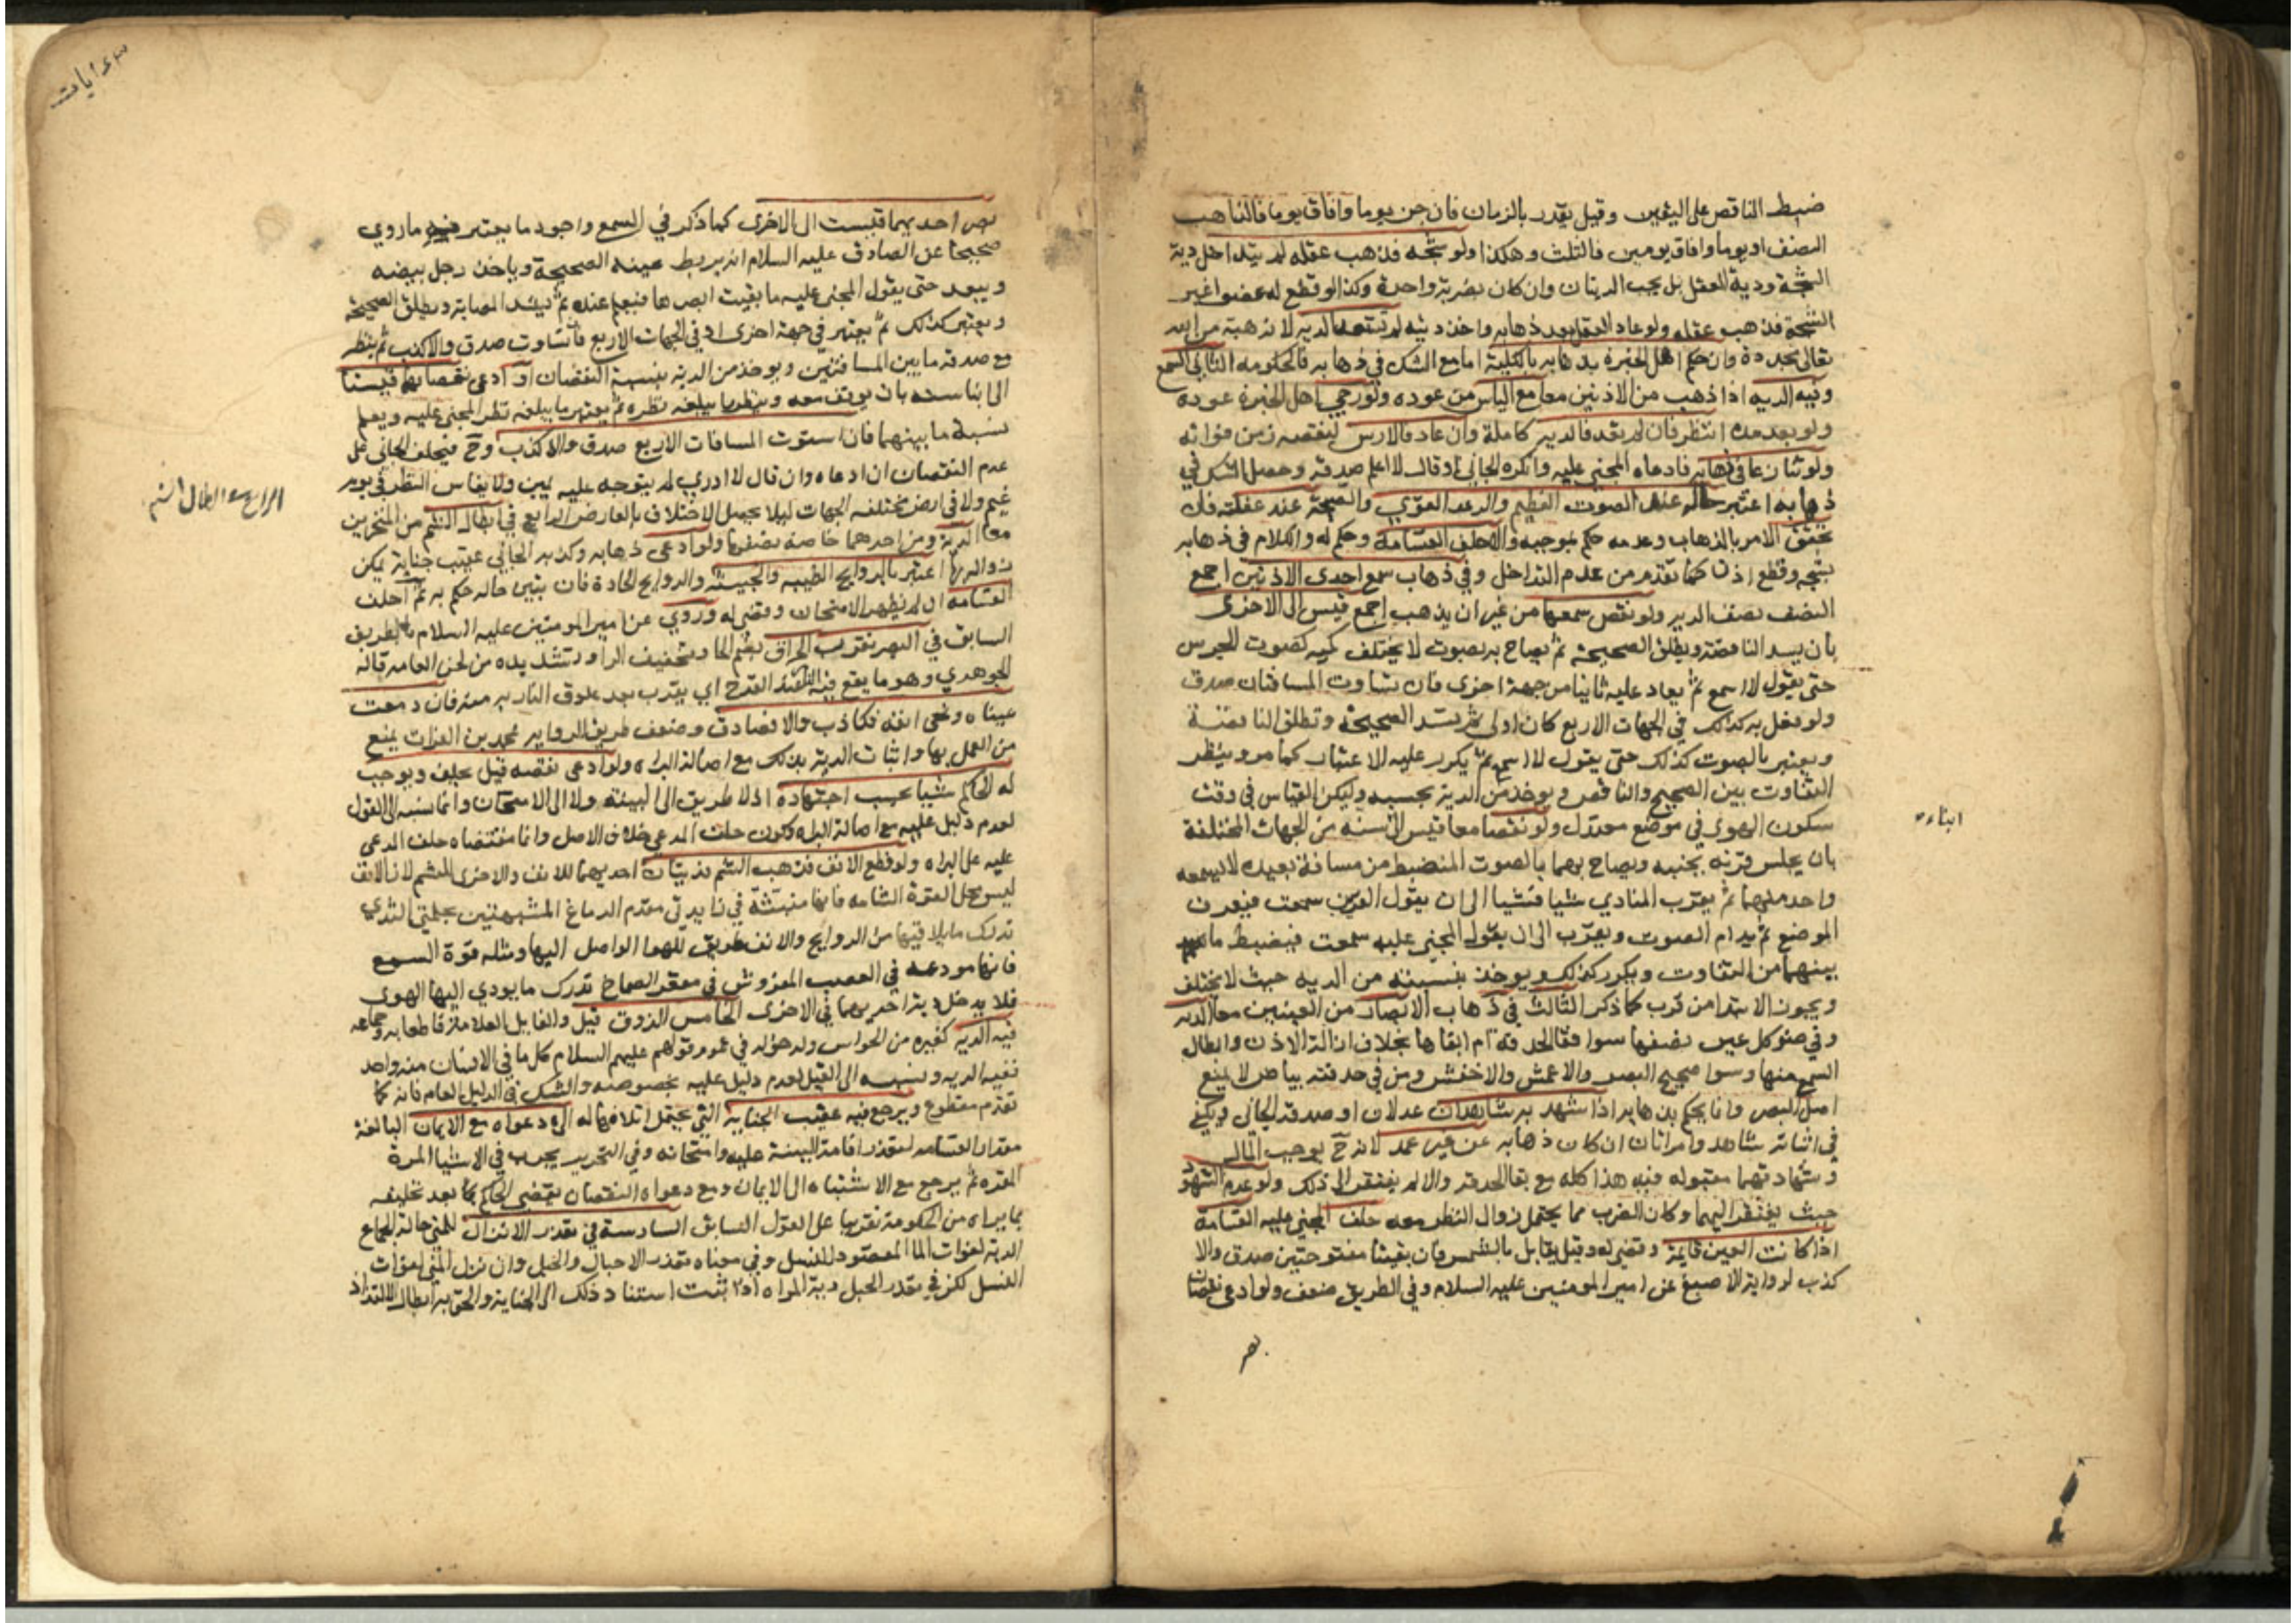 ضبط الناقص على اليقين وقيل يقدر بالزمان فان جن يوما وافاق يوما فالذاهب
النصف او يوما وافاق يومين فالثلث وهكذا ولو شجه فذهب عقله لم تتداخل دية
الشجة ودية العقل بل يجب الديتان وان كان بضربة واحدة وكذا لو قطع له عضوا غير
الشجة فذهب عقله ولو عاد العقل بعد ذهابه واخذ ديته لم تستعد الدية لانه هبة من الله
تعالى مجددة وان حكم اهل الخبرة بذهابه بالكلية اما مع الشك في ذهابه فالحكومة الثاني السمع
وفيه الدية اذا ذهب من الاذنين معا مع الياس من عوده ولو رجي اهل الخبرة عوده
ولو بعد مدة انتظر فان لم يعد فالدية كاملة وان عاد فالارش لنقصه زمن فواته
ولو تنازعا في ذهابه فادعاه المجني عليه وانكره الجاني او قال لا اعلم صدقه وحصل الشك في
ذهابه اعتبر حاله عند الصوت العظيم والرعد القوي والصيحة عند غفلته فان
تحقق الامر بالذهاب وعدمه حكم بموجبه والا حلف القسامة وحكم له والكلام في ذهابه
بشجه وقطع اذن كما تقدم من عدم التداخل وفي ذهاب سمع احدى الاذنين اجمع
النصف نصف الدية ولو نقص سمعها من غير ان يذهب اجمع قيس الى الاخرى
بان يسد الناقصة ويطلق الصحيحة ثم يصاح به بصوت لا يختلف كميه كصوت الجرس
حتى يقول لا اسمع ثم يعاد عليه ثانيا من جهة اخرى فان تساوت المسافتان صدق
ولو فعل به كذلك في الجهات الاربع كان اولى ثم تسد الصحيحة وتطلق الناقصة
ويعتبر بالصوت كذلك حتى يقول لا اسمع ثم يكرر عليه الاعتبار كما مر وينظر
التفاوت بين الصحيح والناقص ويوخذ من الدية بحسبه وليكن القياس في وقت
سكون الهوى في موضع معتدل ولو نقصا معا قيس الى سنه من الجهات المختلفة
ابناء
بان يجلس قرنه بجنبه ويصاح بهما بالصوت المنضبط من مسافة بعيدة لا يسمعه
واحد منهما ثم يقرب المنادي شيا فشيا الى ان يقول القرين سمعت فيعرف
الموضع ثم يدام الصوت ويقرب الى ان يقول المجني عليه سمعت فيضبط ما
بينهما من التفاوت ويكرر كذلك ويوخذ بنسبته من الدية حيث لا يختلف
ويجوز الابتدا من قرب كما ذكر الثالث في ذهاب الابصار من العينين معا الدية
وفي ضو كل عين نصفها سوا فقا الحدقة ام ابقاها بخلاف ازالة الاذن وابطال
السمع منها وسوا صحيح البصر والاعمش والاخفش ومن في حدقته بياض لا يمنع
اصل البصر وانما يحكم بذهابه اذا شهد به شاهدان عدلان او صدقه الجاني ويكفي
في اثباته شاهد وامراتان ان كان ذهابه عن غير عمد لانه ح يوجب المال
وشهادتهما مقبولة فيه هذا كله مع بقا الحدقة والا لم يفتقر الى ذلك ولو عدم الشهود
حيث يفتقر اليهما وكان الضرب مما يحتمل زوال النظر معه حلف المجني عليه القسامة
اذا كانت العين قايمة وقضي له وقيل يقابل بالشمس فان بقيتا مفتوحتين صدق والا
كذب لرواية الاصبغ عن امير المومنين عليه السلام وفي الطريق ضعف ولو ادعى نقصان
بصر
بصر احديهما قيست الى الاخرى كما ذكر في السمع واجود ما يعتبر فيه ما روي
صحيحا عن الصادق عليه السلام انه يربط عينه الصحيحة وياخذ رجل بيضه
ويبعد حتى يقول المجني عليه ما بقيت ابصرها فيعلم عنده ثم يشد المصابة ويطلق الصحيحة
ويعتبر كذلك ثم يعتبر في جهة اخرى او في الجهات الاربع فان تساوت صدق والا كذب ثم ينظر
مع صدقه ما بين المسافتين ويوخذ من الدية بنسبة النقصان او ادعى نقصانهما قيستا
الى ابنا سنه بان يوقف معه وينظر ما يبلغه نظره ثم يعتبر ما يبلغه نظر المجني عليه ويعلم
نسبة ما بينهما فان استوت المسافات الاربع صدق والا كذب وح فيحلف الجاني على
عدم النقصان ان ادعاه وان قال لا ادري لم يتوجه عليه يمين ولا يقاس النظر في يوم
غيم ولا في ارض مختلفة الجهات ليلا يحصل الاختلاف بالعارض الرابع في ابطال الشم من المنخرين
الرابع في ابطال الشم
معا الدية ومن احدهما خاصة نصفها ولو ادعى ذهابه وكذبه الجاني عقيب جناية يمكن
زواله بها اعتبر بالروايح الطيبه والخبيثه والروايح الحادة فان تبين حاله حكم به ثم احلف
القسامه ان لم يظهر الامتحان وقضي له وروي عن امير المومنين عليه السلام بالطريق
السابق في البصر تقريب الحراق بضم الحا وتخفيف الرا وتشديده من لحن العامة قاله
الجوهري وهو ما يقع فيه النار عند القدح اي يقرب بعد علوق النار به منه فان دمعت
عيناه ونحى انفه فكاذب والا فصادق وضعف طريق الرواية محمد بن الفرات يمنع
من العمل بها واثبات الدية بذلك مع اصالة البراه ولو ادعى نقصه قيل يحلف ويوجب
له الحاكم شيا بحسب اجتهاده اذ لا طريق الى البينه ولا الى الامتحان وانما نسبه الى القول
لعدم دليل عليه مع اصالة البراه وكون حلف المدعي خلاف الاصل وانما مقتضاه حلف المدعى
عليه على البراه ولو قطع الانف فذهب الشم فديتان احديهما للانف والاخرى للشم لان الانف
ليس محل القوة الشامه فانها منبثة في زايدتي مقدم الدماغ المشبهتين بحلمتي الثدي
تدرك ما يلاقيها من الروايح والانف طريق للهوا الواصل اليها ومثله قوة السمع
فانها مودعه في العصب المفروش في مقعر الصماخ تدرك ما يودي اليها الهوى
فلا يدخل دية احديهما في الاخرى الخامس الذوق قيل والقايل العلامة قاطعا به وجماعه
فيه الدية كغيره من الحواس ولدخوله في عموم قولهم عليهم السلام كل ما في الانسان منه واحد
ففيه الدية ونسبه الى القيل لعدم دليل عليه بخصوصه والشك في الدليل العام فانه كما
تقدم مقطوع ويرجع فيه عقيب الجناية التي يحتمل اتلافها له الى دعواه مع الايمان البالغة
مقدار القسامه لتعذر اقامة البينة عليه وامتحانه وفي التحرير يجرب في الاشيا المرة
المقره ثم يرجع مع الاشتباه الى الايمان ومع دعواه النقصان يقضي الحاكم بما بعد تحليفه
بما يراه من الحكومة تقريبا على القول السابق السادسة في تعذر الانزال للمني حالة الجماع
الدية لفوات الما المقصود للنسل وفي معناه تعذر الاحبال والحبل وان نزل المني لفوات
النسل لكن في تعذر الحبل دية المراه اذا ثبت استناد ذلك الى الجناية والحق به ابطال الالتذاذ